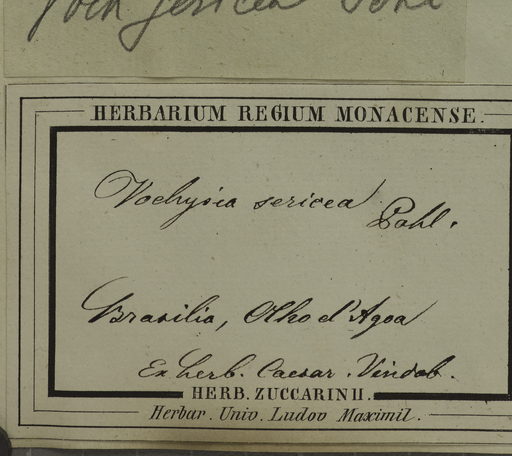 Voch sericea Pohl
HERBARIUM REGIUM MONACENSE.
Vochysia sericea Pohl.
Brasilia, Olho d'Agoa
Ex herb. Caesar. Vindob.
HERB. ZUCCARINII.
Herbar. Univ. Ludov Maximil.